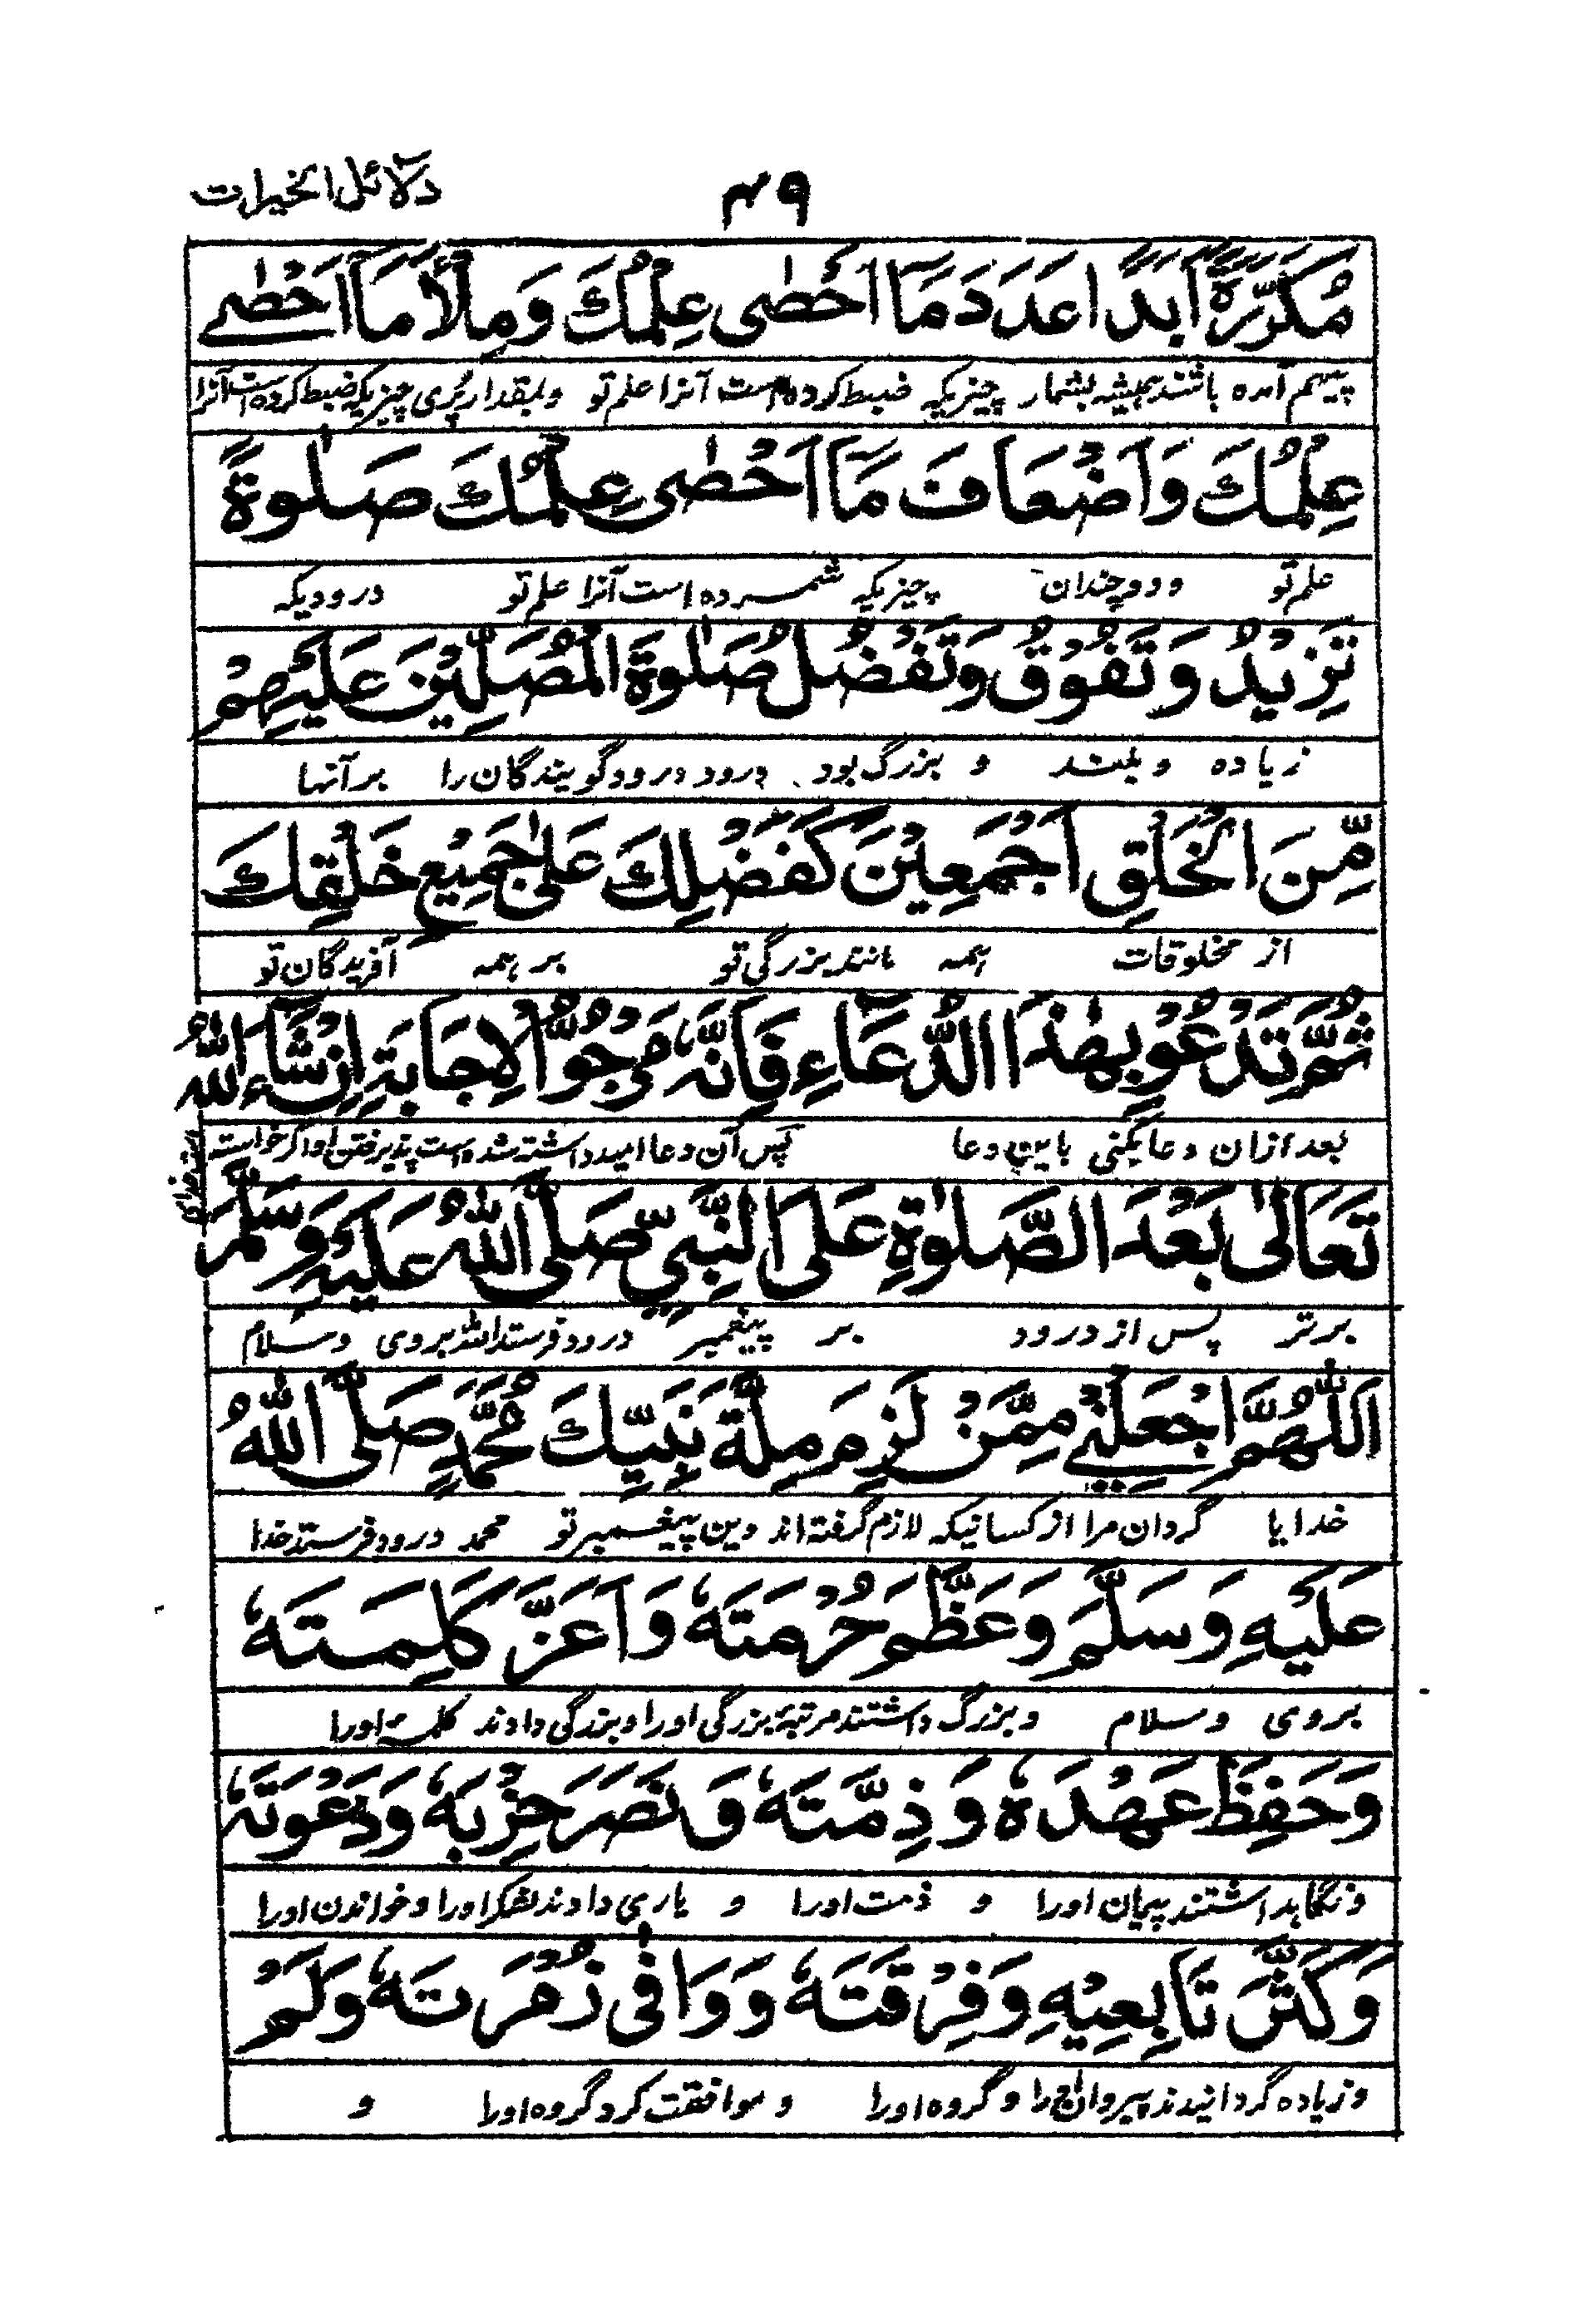 دلائل الخيرات
۴۹
مُكَرَّرَةً اَبَدًا عَدَدَ مَآ اَحْصٰى عِلْمُكَ وَمِلْأَ مَآ اَحْصٰى
پیهم آمده باشند همیشه بشمار چیزیکه ضبط کرده است آنرا علم تو و بمقدار پُری چیزیکه ضبط کرده است آنرا
عِلْمُكَ وَاَضْعَافَ مَآ اَحْصٰى عِلْمُكَ صَلٰوةً
علم تو و دو چندان چیزیکه شمرده است آنرا علم تو درودیکه
تَزِيْدُ وَتَفُوْقُ وَتَفْضُلُ صَلٰوةَ الْمُصَلِّيْنَ عَلَيْهِمْ
زیاده و بلند و بزرگ بود درود درود گویندگان را بر آنها
مِّنَ الْخَلْقِ اَجْمَعِيْنَ كَفَضْلِكَ عَلٰى جَمِيْعِ خَلْقِكَ
از مخلوقات همه مانند بزرگی تو بر همه آفریدگان تو
ثُمَّ تَدْعُوْ بِهٰذَا الدُّعَآءِ فَاِنَّهٗ مَرْجُوُّ الْاِجَابَةِ اِنْ شَآءَ اللّٰهُ
بعد ازان دعا بکنی باین دعا پس آن دعا امید داشته شده است پذیرفتن او اگر خواسته
تَعَالٰى بَعْدَ الصَّلٰوةِ عَلَى النَّبِيِّ صَلَّى اللّٰهُ عَلَيْهِ وَسَلَّمَ
برتر پس از درود بر پیغمبر درود فرستد الله بروی و سلام
اَللّٰهُمَّ اجْعَلْنِيْ مِمَّنْ لَزِمَ مِلَّةَ نَبِيِّكَ مُحَمَّدٍ صَلَّى اللّٰهُ
خدایا گردان مرا از کسانیکه لازم گرفته اند دین پیغمبر تو محمد درود فرستد خدا
عَلَيْهِ وَسَلَّمَ وَعَظَّمَ حُرْمَتَهٗ وَاَعَزَّ كَلِمَتَهٗ
بروی و سلام و بزرگ داشتند مرتبهٔ بزرگی او را و بزرگی دادند کلمهٔ او را
وَحَفِظَ عَهْدَهٗ وَذِمَّتَهٗ وَنَصَرَ حِزْبَهٗ وَدَعْوَتَهٗ
و نگاهداشتند پیمان او را و ذمت او را و یاری دادند لشکر او را و خواندن او را
وَكَثَّرَ تَابِعِيْهِ وَفِرْقَتَهٗ وَوَافٰى زُمْرَتَهٗ وَلَمْ
و زیاده گردانیدند پیروان او را و گروه او را و موافقت کرد گروه او را و